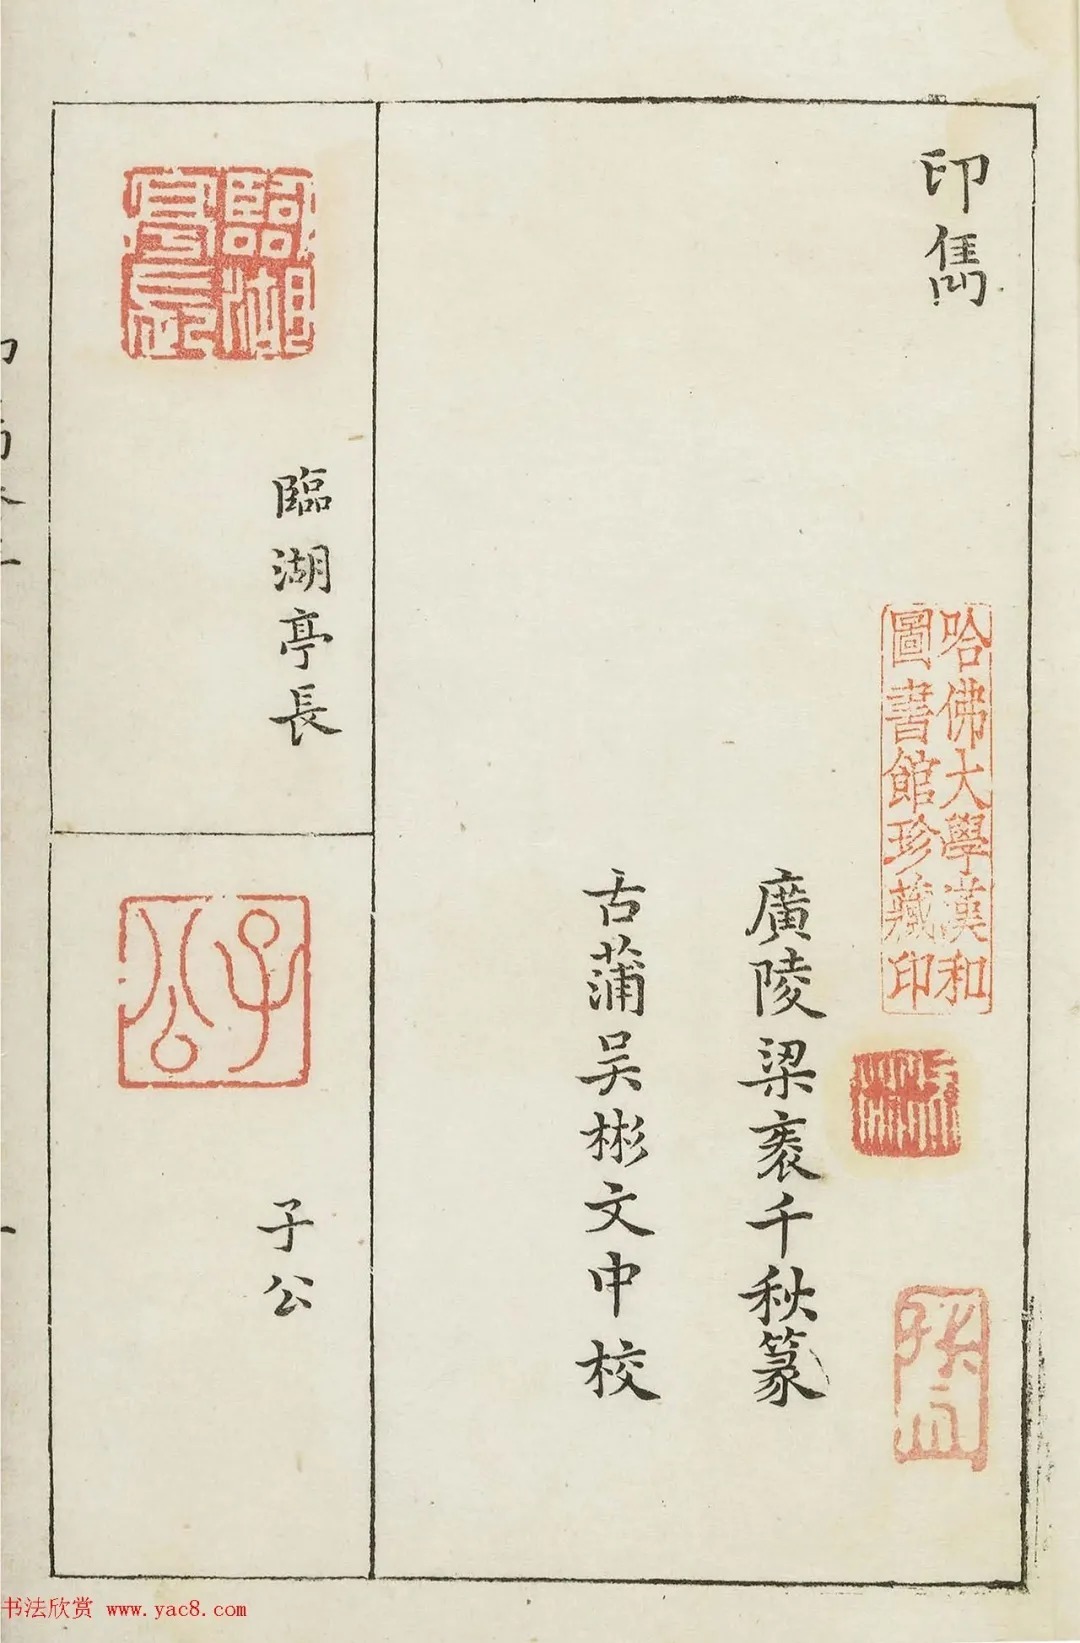 印雋
哈佛大學漢和
圖書館珍藏印
廣陵梁袠千秋篆
古蒲吴彬文中校
臨湖
亭長
臨湖亭長
子公
子公
书法欣赏 www.yac8.com